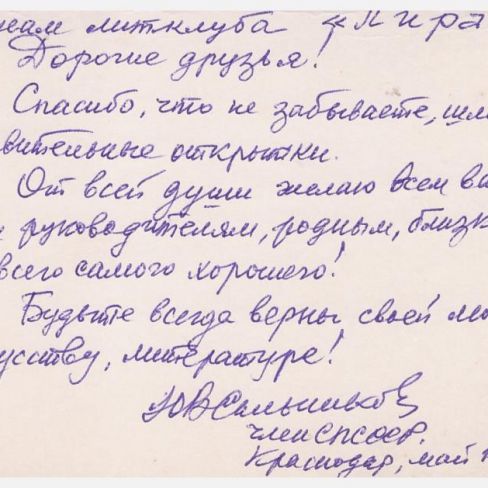 литклуба «Лира
Дорогие друзья!
Спасибо, что не забываете, шл
вительные открытки.
От всей души желаю всем ва
руководителям, родным, близк
всего самого хорошего!
Будьте всегда верны своей
усству, литературе!
Ю В Сальников
член СП СССР.
Краснодар, май